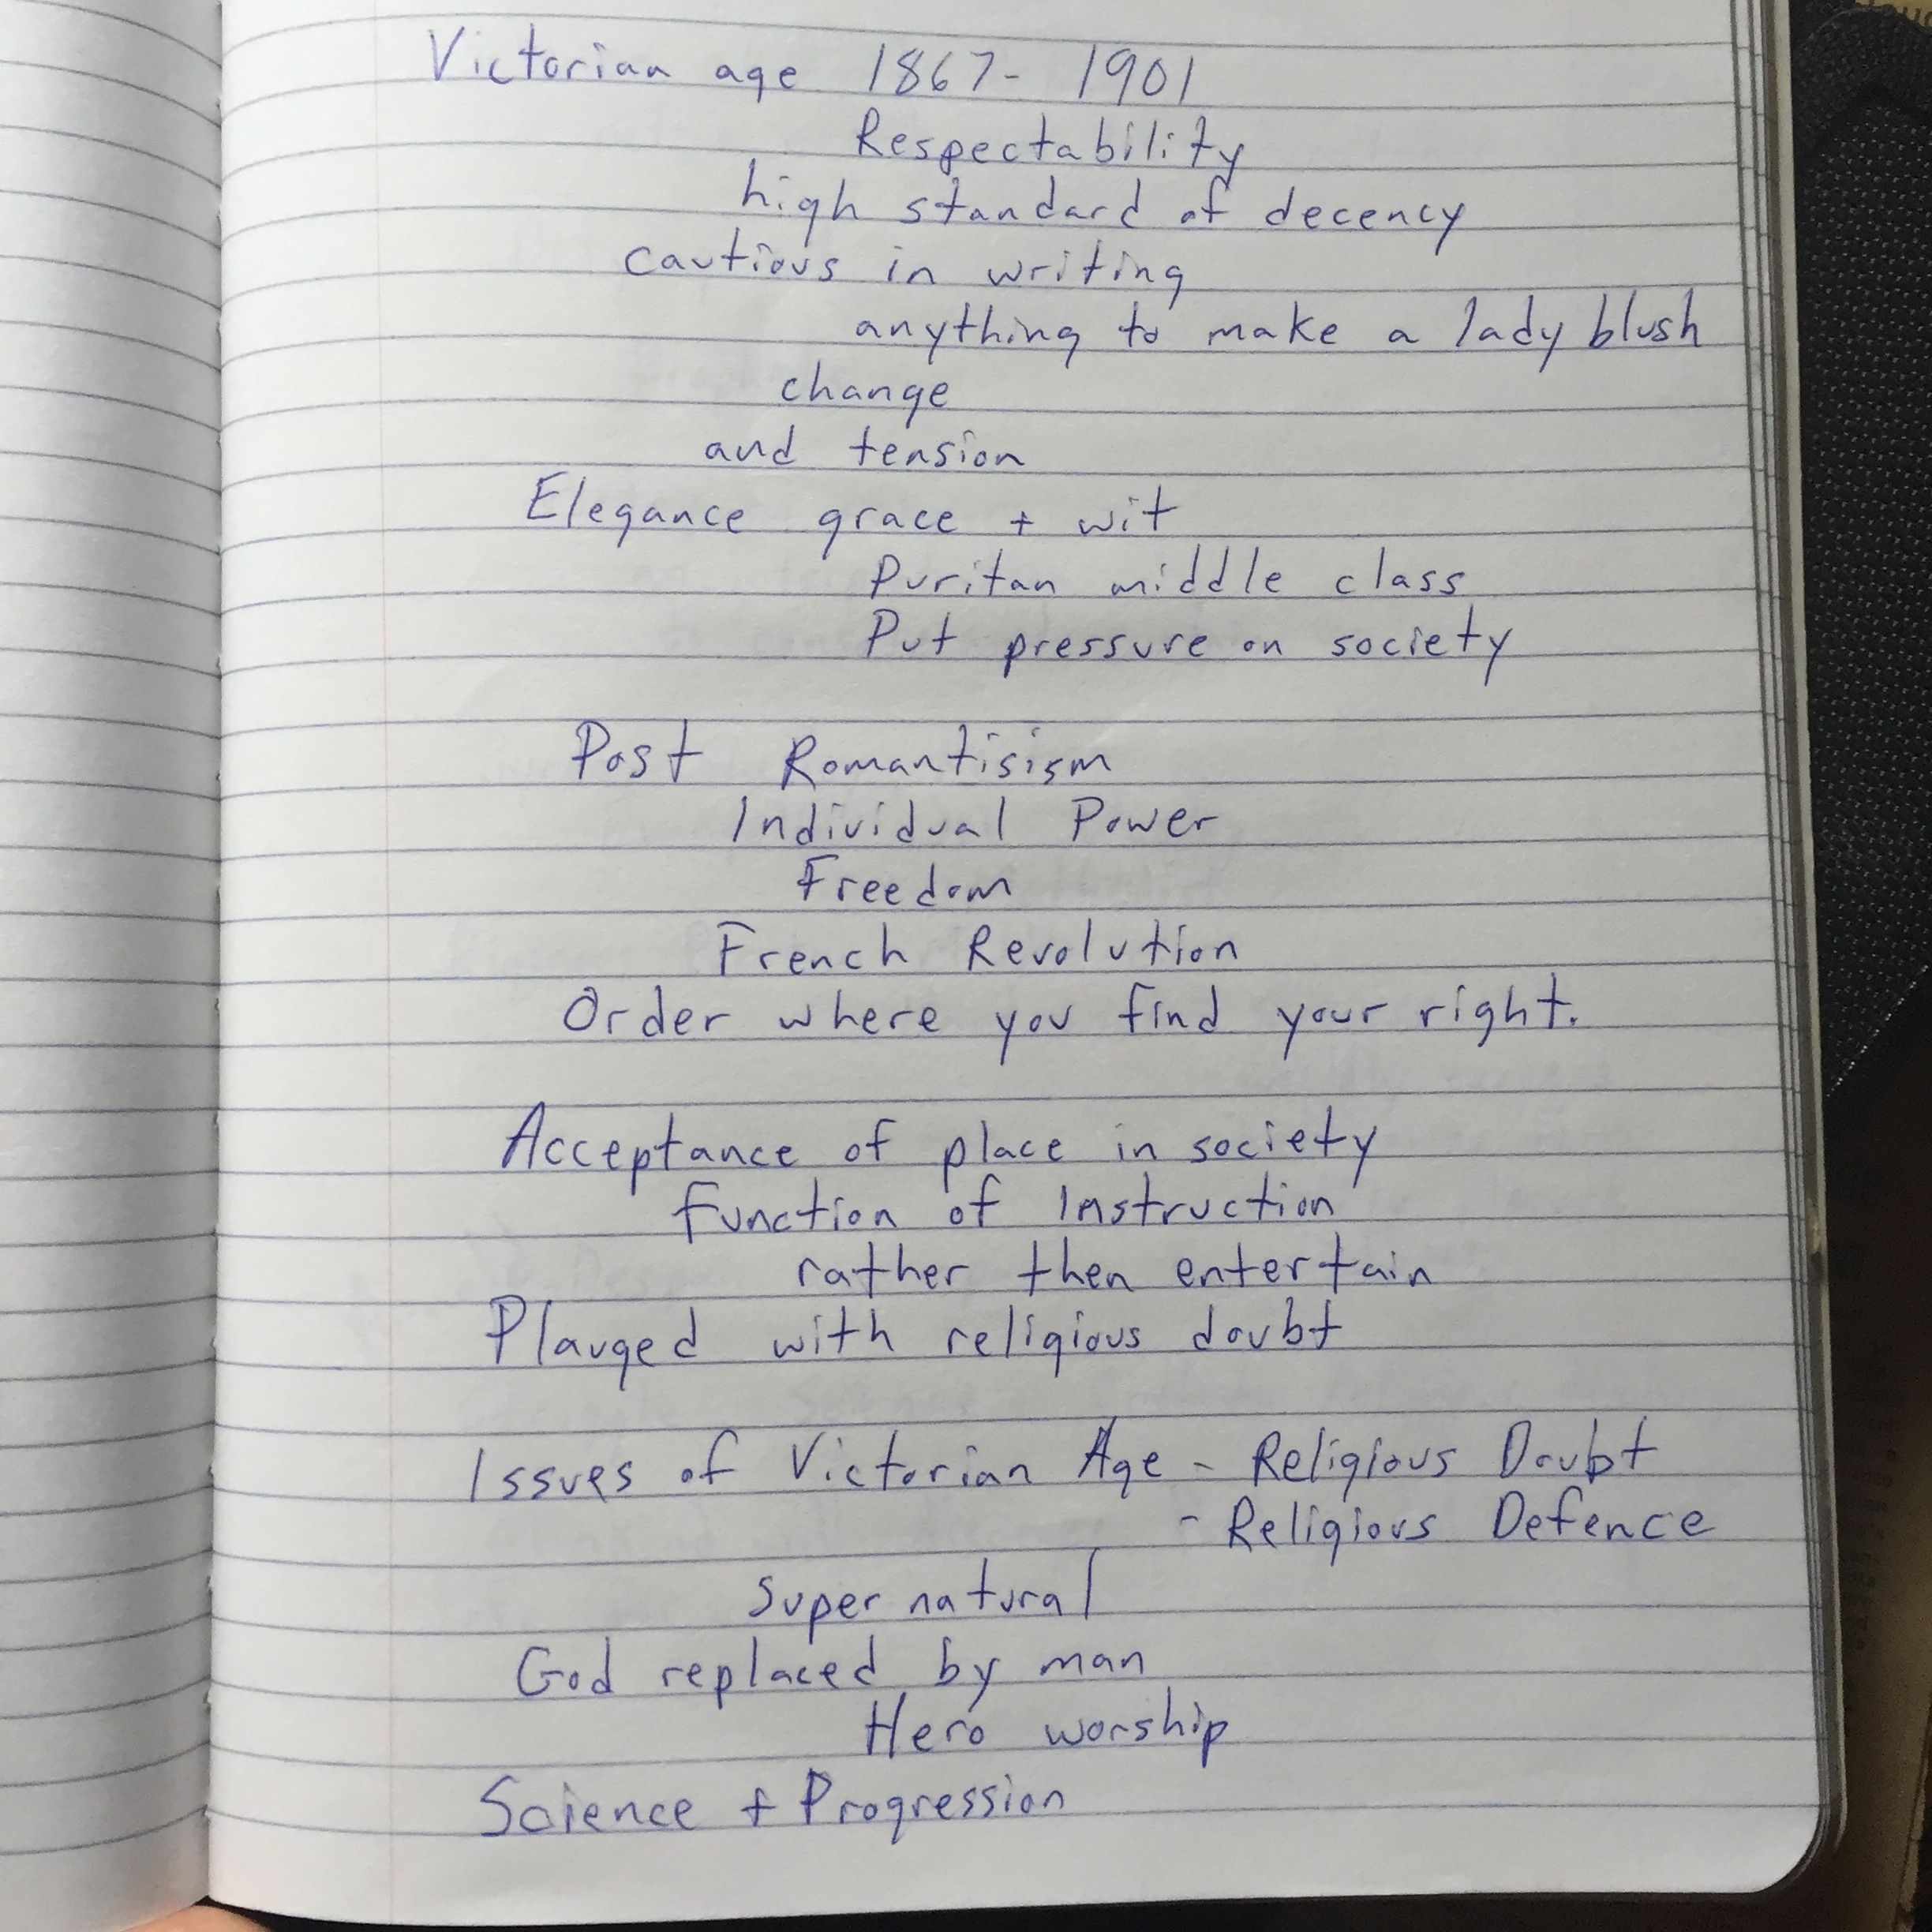 Victorian age 1867- 1901
Respectability
high standard of decency
cautious in writing
anything to make a lady blush
change
and tension
Elegance grace + wit
Puritan middle class
Put pressure on society
Post Romantisism
Individual Power
Freedom
French Revolution
Order where you find your right.
Acceptance of place in society
function of Instruction
rather then entertain
Plauged with religious doubt
Issues of Victorian Age - Religious Doubt
- Religious Defence
Super natural
God replaced by man
Hero worship
Science + Progression